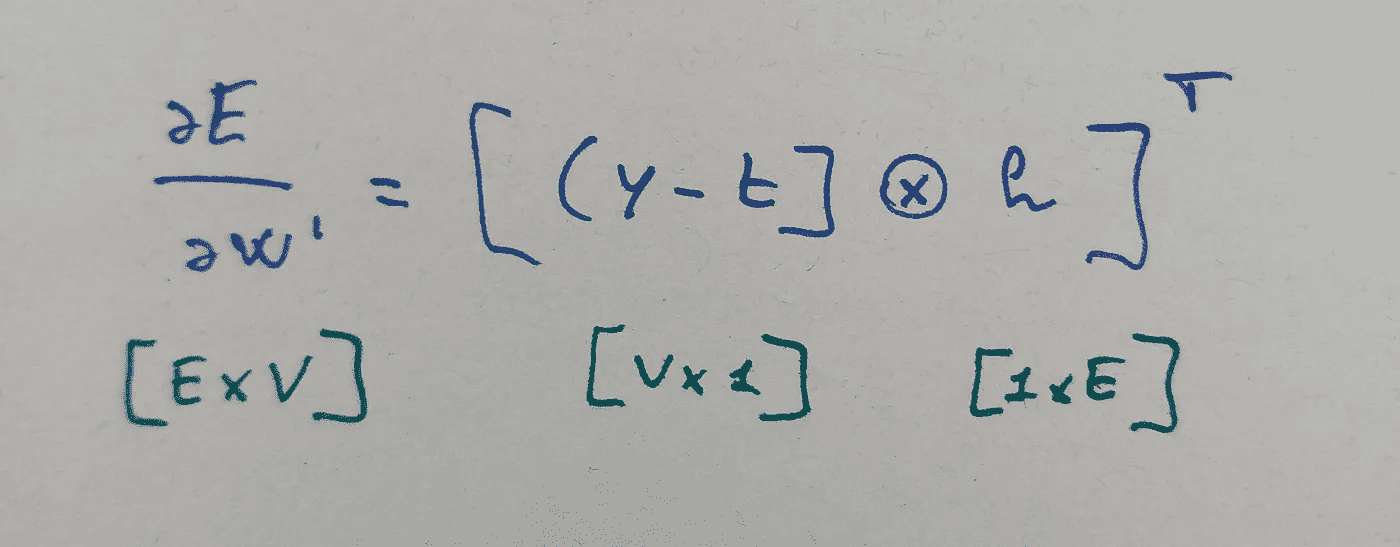 ∂E/∂W' = [(y - t] ⊗ h]^T
[E x V] [V x 1] [1 x E]